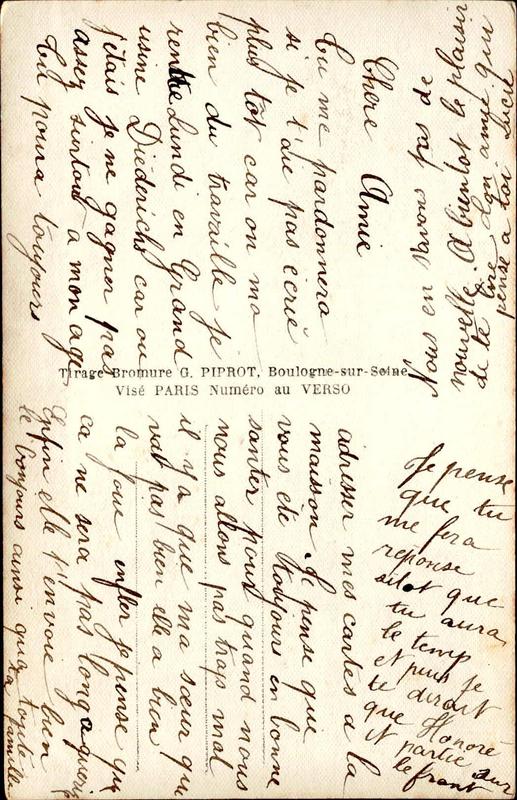 Chere Amie
Tu me pardonnera
si je t'aie pas ecrie
plus tôt car on ma
bien du travaille je
rentre Lundi en Grand
usine Diederichs car ou
j'étais je ne gagner pas
assez surtout a mon age
Tu poura toujours
adresser mes cartes a la
maison. Je pense que
vous ete toujours en bonne
santer pour quand nous
nous allons pas trops mal
il y a que ma sœur qui
vat pas bien elle a bien
la joue enfler je pense que
ca ne sera pas long a guerir
Enfin elle t'envoie bien
le bonjours ainsi qua toute
ta famille
Je pense
que tu
me fera
reponse
sitot que
tu aura
le temp
et puis je
te dirait
que Honoré
et partie sur
le front
Nous en navons pas de
nouvelle. A bientot le plaisir
de te lire Ton amie qui
pense a toi. Lucie
Tirage Bromure G. PIPROT, Boulogne-sur-Seine
Visé PARIS Numéro au VERSO